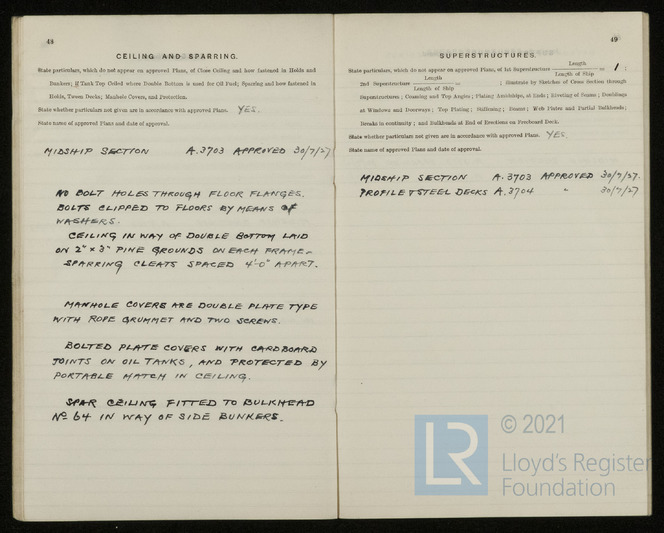 48
CEILING AND SPARRING.
State particulars, which do not appear on approved Plans, of Close Ceiling and how fastened in Holds and
Bunkers; if Tank Top Ceiled where Double Bottom is used for Oil Fuel; Sparring and how fastened in
Holds, Tween Decks; Manhole Covers, and Protection.
State whether particulars not given are in accordance with approved Plans. YES.
State name of approved Plans and date of approval.
MIDSHIP SECTION A.3703 APPROVED 30/7/27
NO BOLT HOLES THROUGH FLOOR FLANGES.
BOLTS CLIPPED TO FLOORS BY MEANS OF
WASHERS.
CEILING IN WAY OF DOUBLE BOTTOM LAID
ON 2" x 3" PINE GROUNDS ON EACH FRAME.
SPARRING CLEATS SPACED 4'-0" APART.
MANHOLE COVERS ARE DOUBLE PLATE TYPE
WITH ROPE GRUMMET AND TWO SCREWS.
BOLTED PLATE COVERS WITH CARDBOARD
JOINTS ON OIL TANKS, AND PROTECTED BY
PORTABLE HATCH IN CEILING.
SPAR CEILING FITTED TO BULKHEAD
No 64 IN WAY OF SIDE BUNKERS.
49
SUPERSTRUCTURES.
State particulars, which do not appear on approved Plans, of 1st Superstructure Length / Length of Ship 1 ;
2nd Superstructure Length / Length of Ship ; Illustrate by Sketches of Cross Section through
Superstructures; Coaming and Top Angles; Plating Amidships, at Ends; Riveting of Seams; Doublings
at Windows and Doorways; Top Plating; Stiffening; Beams; Web Plates and Partial Bulkheads;
Breaks in continuity; and Bulkheads at End of Erections on Freeboard Deck.
State whether particulars not given are in accordance with approved Plans. YES.
State name of approved Plans and date of approval.
MIDSHIP SECTION A.3703 APPROVED 30/7/27.
PROFILE & STEEL DECKS A.3704 " 30/7/27
© 2021
LR
Lloyd's Register
Foundation